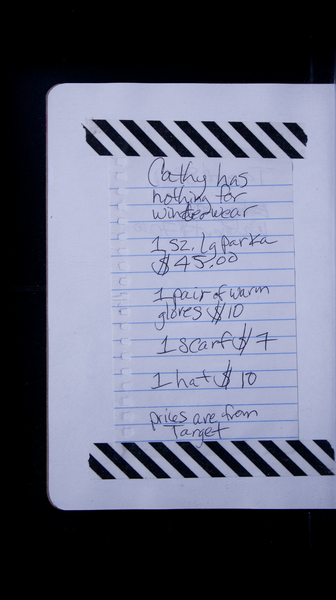 Cathy has
nothing for
winter wear
1 sz. Lg parka
$45.00
1 pair of warm
gloves $10
1 scarf $7
1 hat $10
prices are from
Target